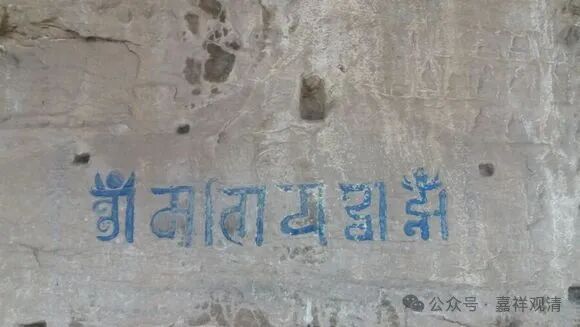 ॐ म णि प द्मे हूँ
公众号 · 嘉祥观清